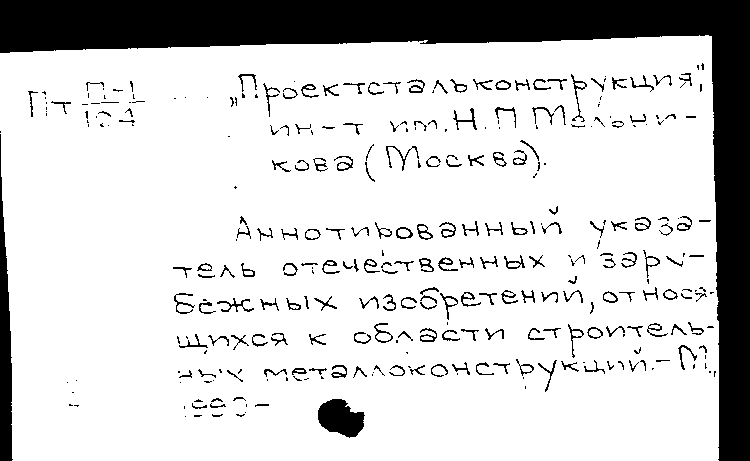 Пт П-1/124 „Проектстальконструкция",
ин-т им. Н.П Мельни-
кова (Москва).
Аннотированный указа-
тель отечественных и зару-
бежных изобретений, относя-
щихся к области строитель-
ных металлоконструкций.-М.,
1990-